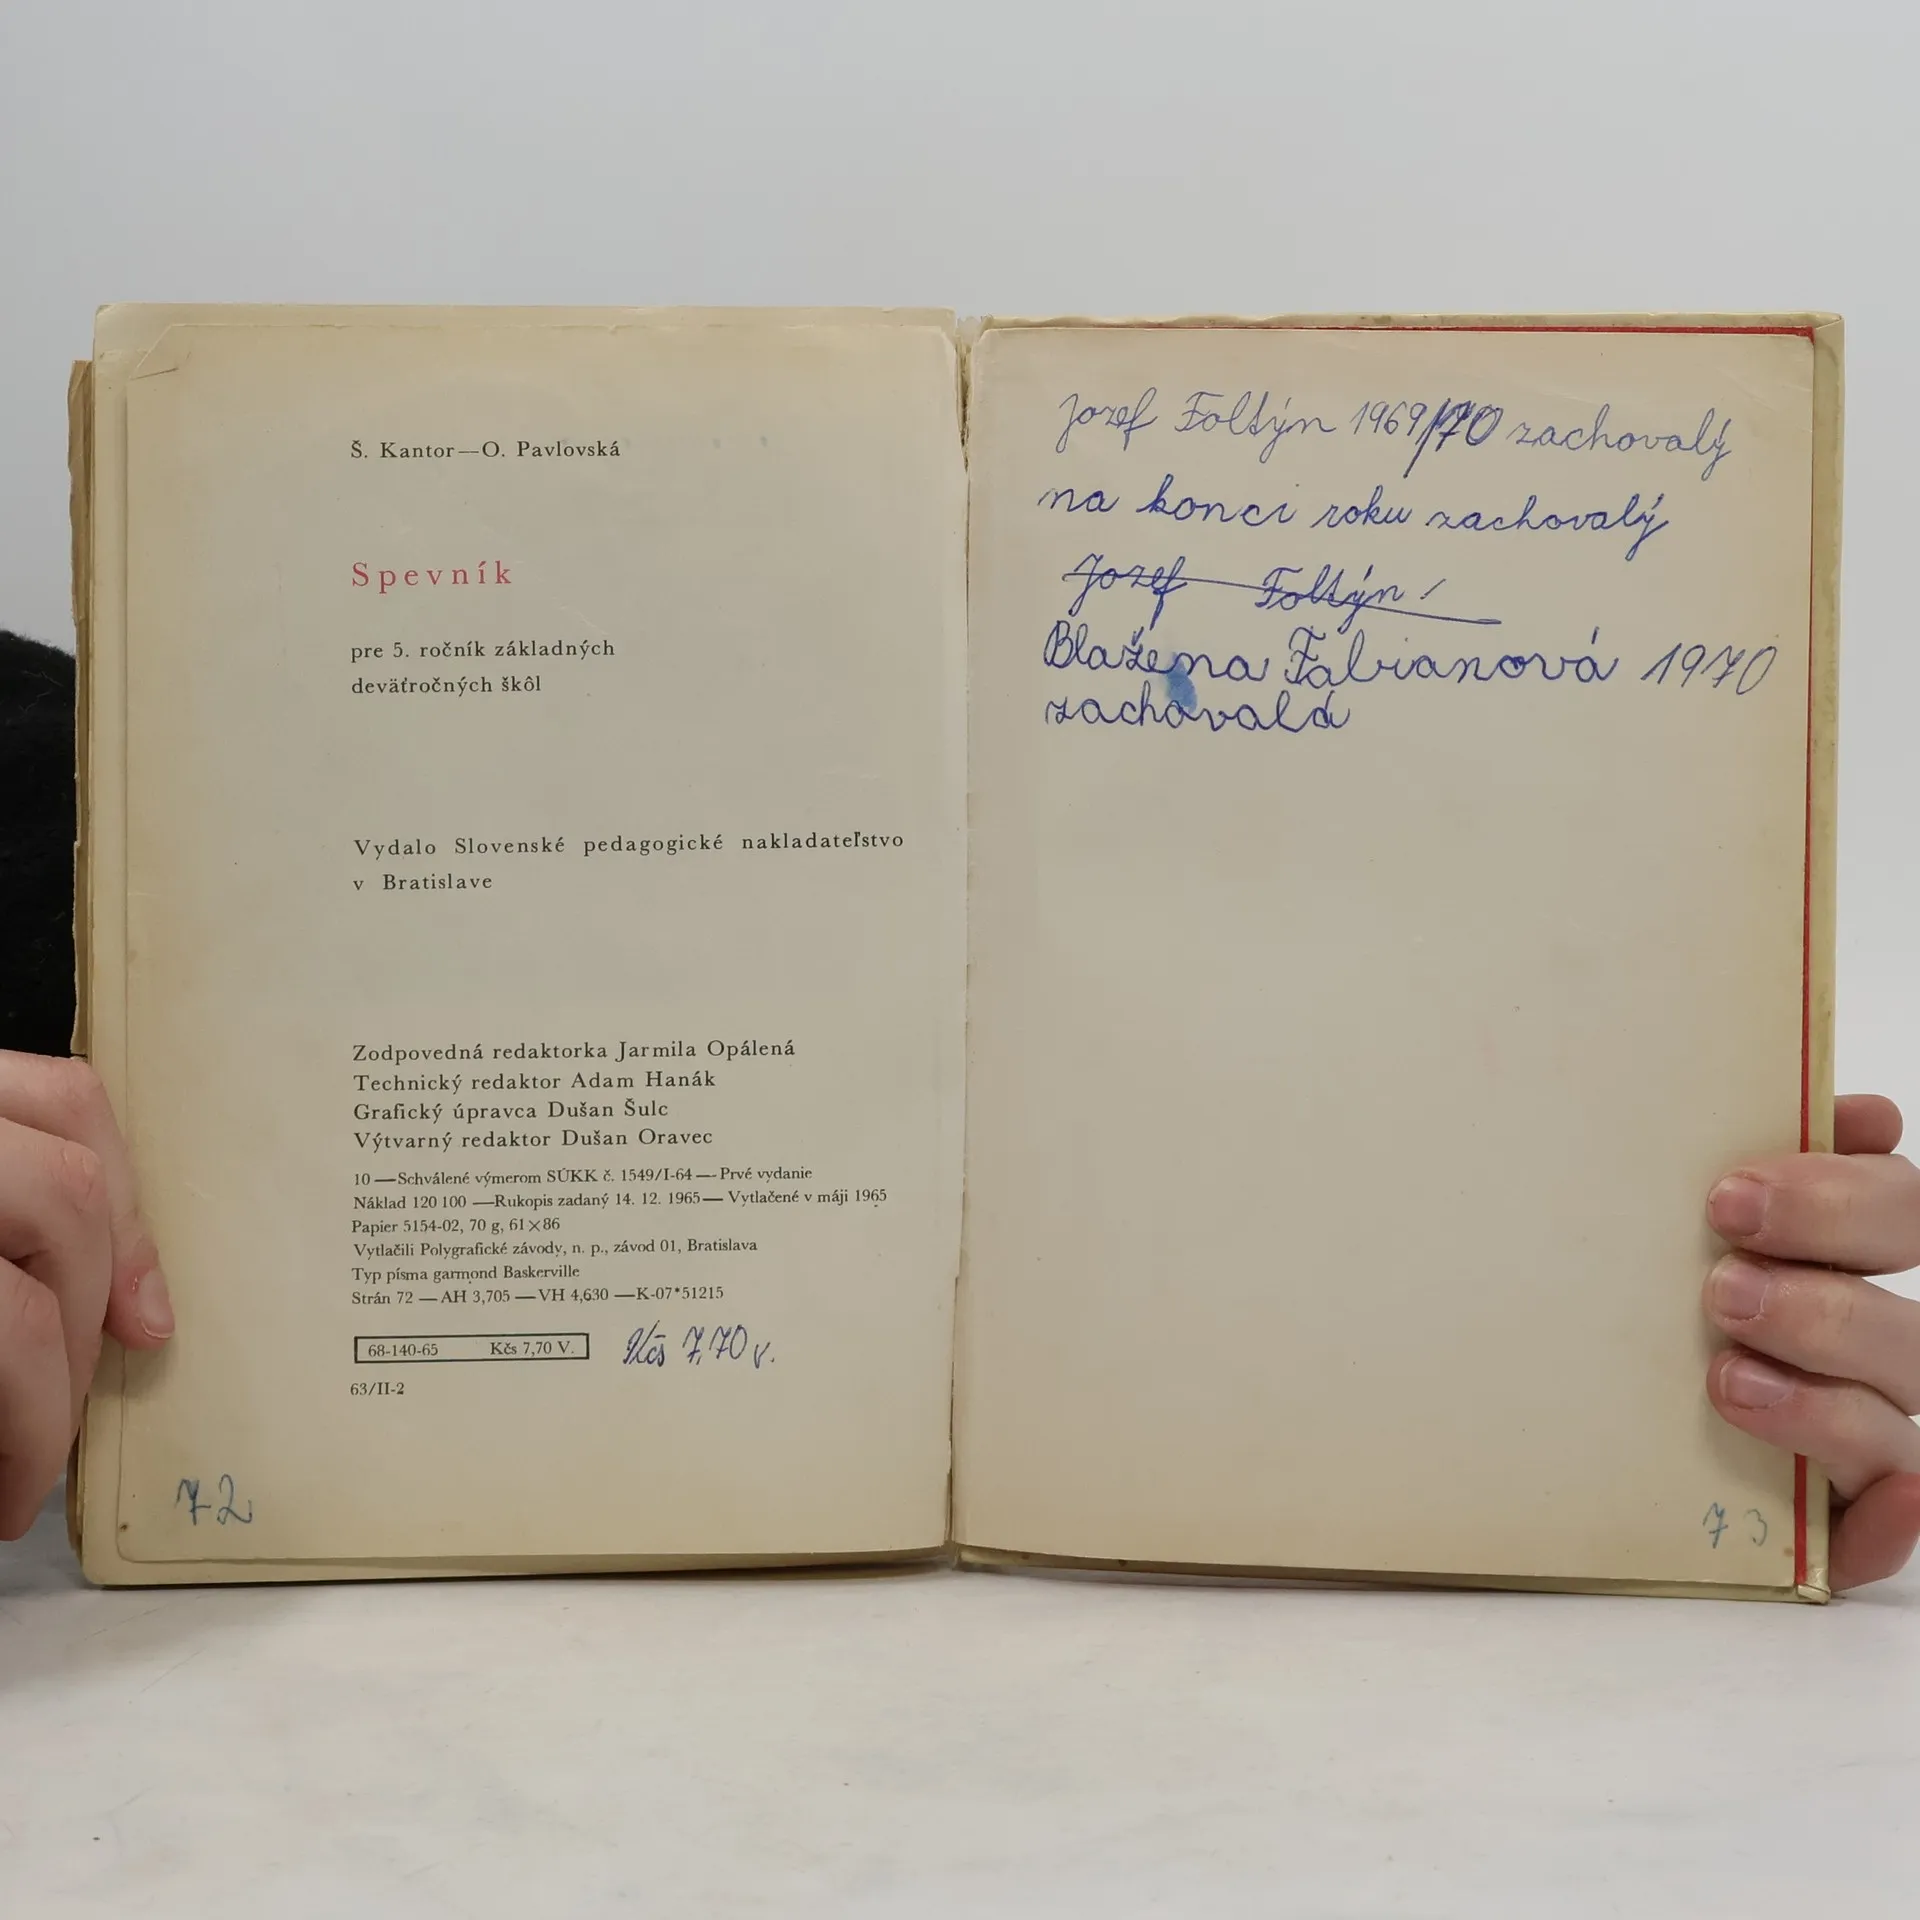 Š. Kantor—O. Pavlovská
Spevník
pre 5. ročník základných
deväťročných škôl
Vydalo Slovenské pedagogické nakladateľstvo
v Bratislave
Zodpovedná redaktorka Jarmila Opálená
Technický redaktor Adam Hanák
Grafický úpravca Dušan Šulc
Výtvarný redaktor Dušan Oravec
10 — Schválené výmerom SÚKK č. 1549/I-64 — Prvé vydanie
Náklad 120 100 — Rukopis zadaný 14. 12. 1965 — Vytlačené v máji 1965
Papier 5154-02, 70 g, 61×86
Vytlačili Polygrafické závody, n. p., závod 01, Bratislava
Typ písma garmond Baskerville
Strán 72 — AH 3,705 — VH 4,630 — K-07*51215
68-140-65 Kčs 7,70 V.
Kčs 7,70 v.
63/II-2
72
Jozef Foltýn 1969/70 zachovalý
na konci roku zachovalý
Jozef Foltýn
Blažena Fabianová 1970
zachovalá
73